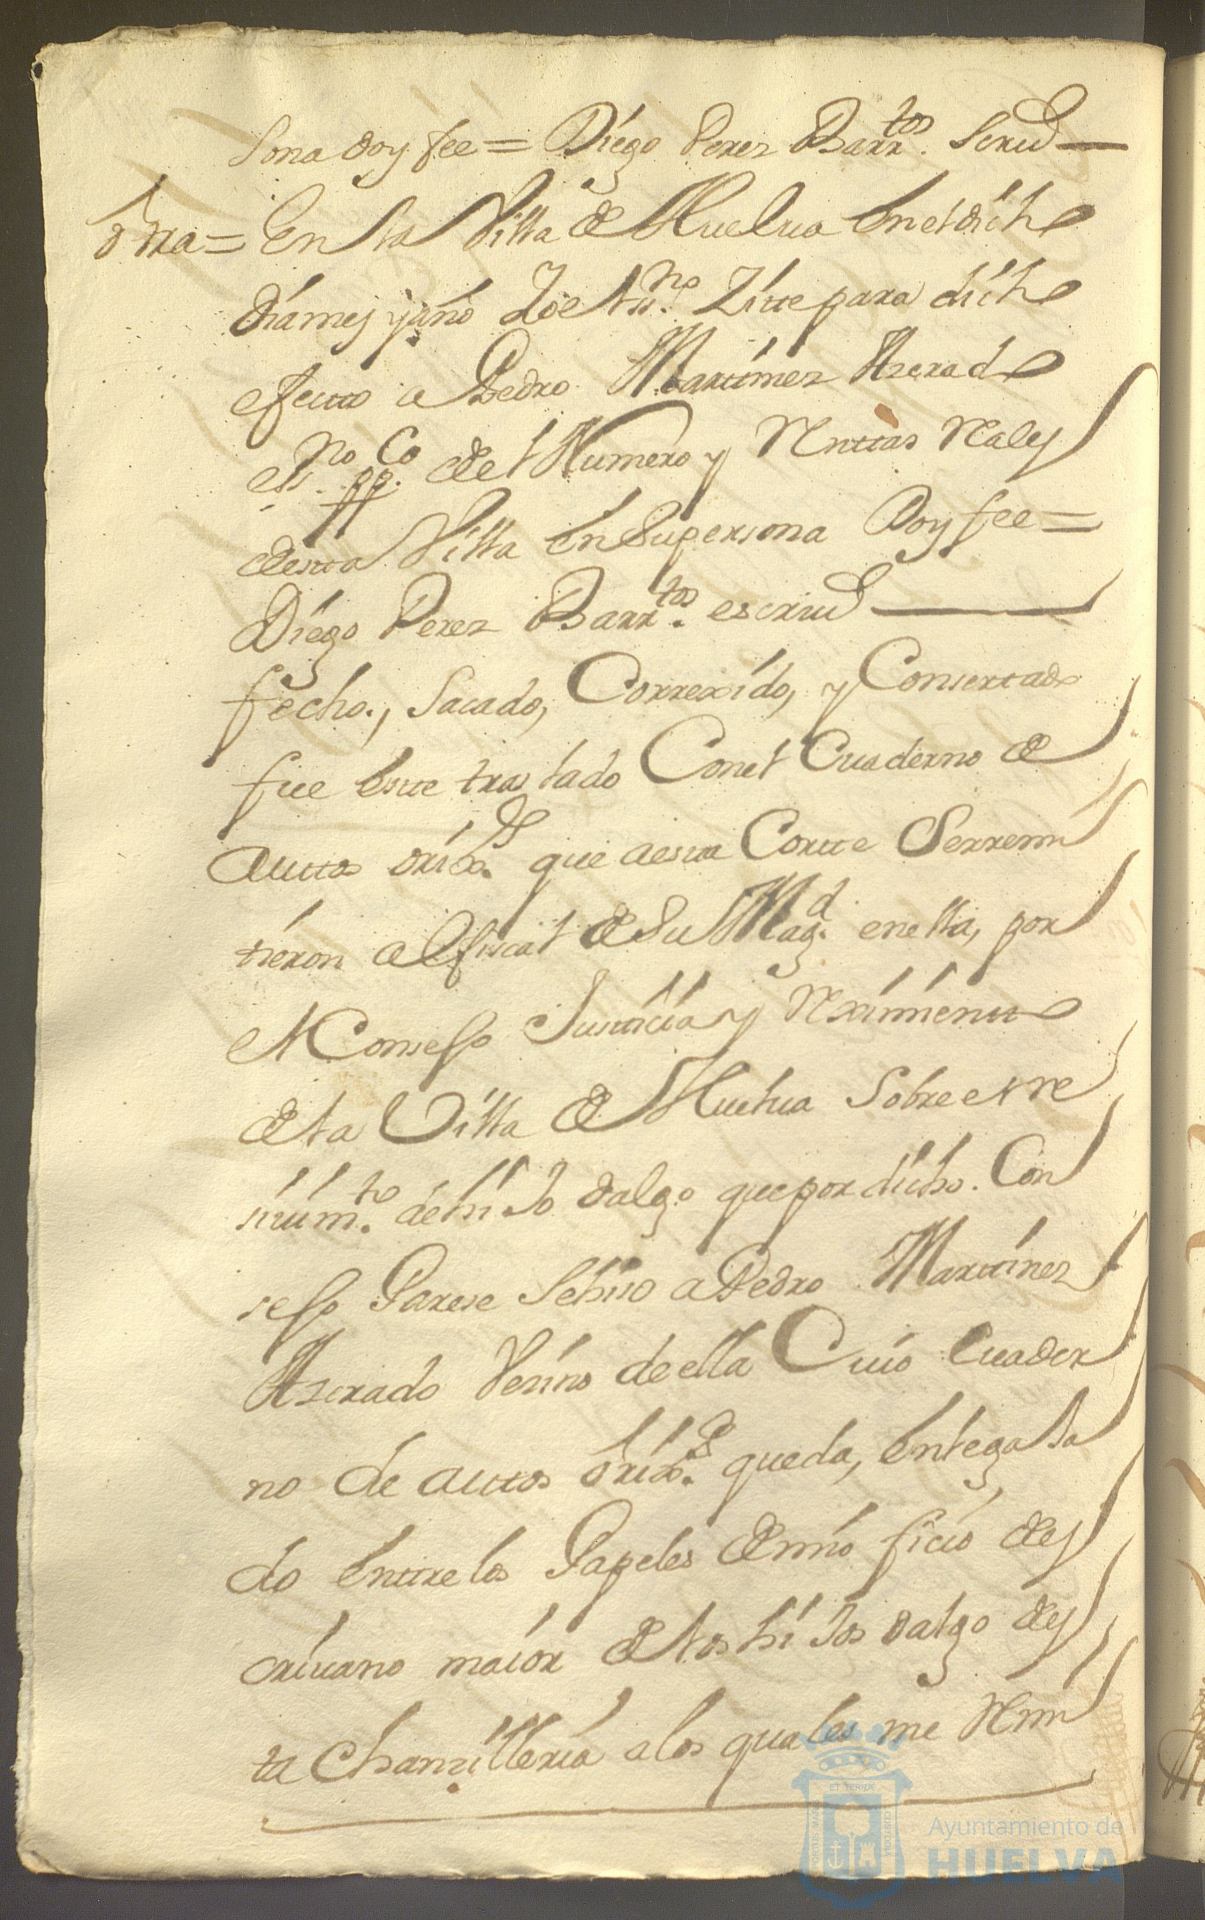 sona doy fee = Diego Perez Barr.tos Scriu.o
otra = En la Villa de Huelua en el dicho
dia mes y año Yo el ess.no Zite para dicho
efecto a Pedro Martinez Azerado
es.no pp.co del Numero y Rentas Rales
desta Villa en su persona Doy fee =
Diego Perez Barr.tos escriu.o
fecho, Sacado, Correxido, y Consertado
fue este traslado Con el Cuaderno de
Auttos orix.s que a esta Corte Se rremi
tieron al fiscal de Su Mag.d en ella, por
el Consejo Justicia y Reximiento
de la Villa de Huelua Sobre el re
siuim.to de hijo dalgo que por dicho. Con
sejo Parese Se hiso a Pedro Martinez
Azerado Vezino de ella Cuio Cuader
no de auttos orix.s queda, entegada
do entre los Papeles de mi ofisio de es
criuano maior de los hijos dalgo de es
ta Chanzilleria a los quales me Remi
Ayuntamiento de
HUELVA